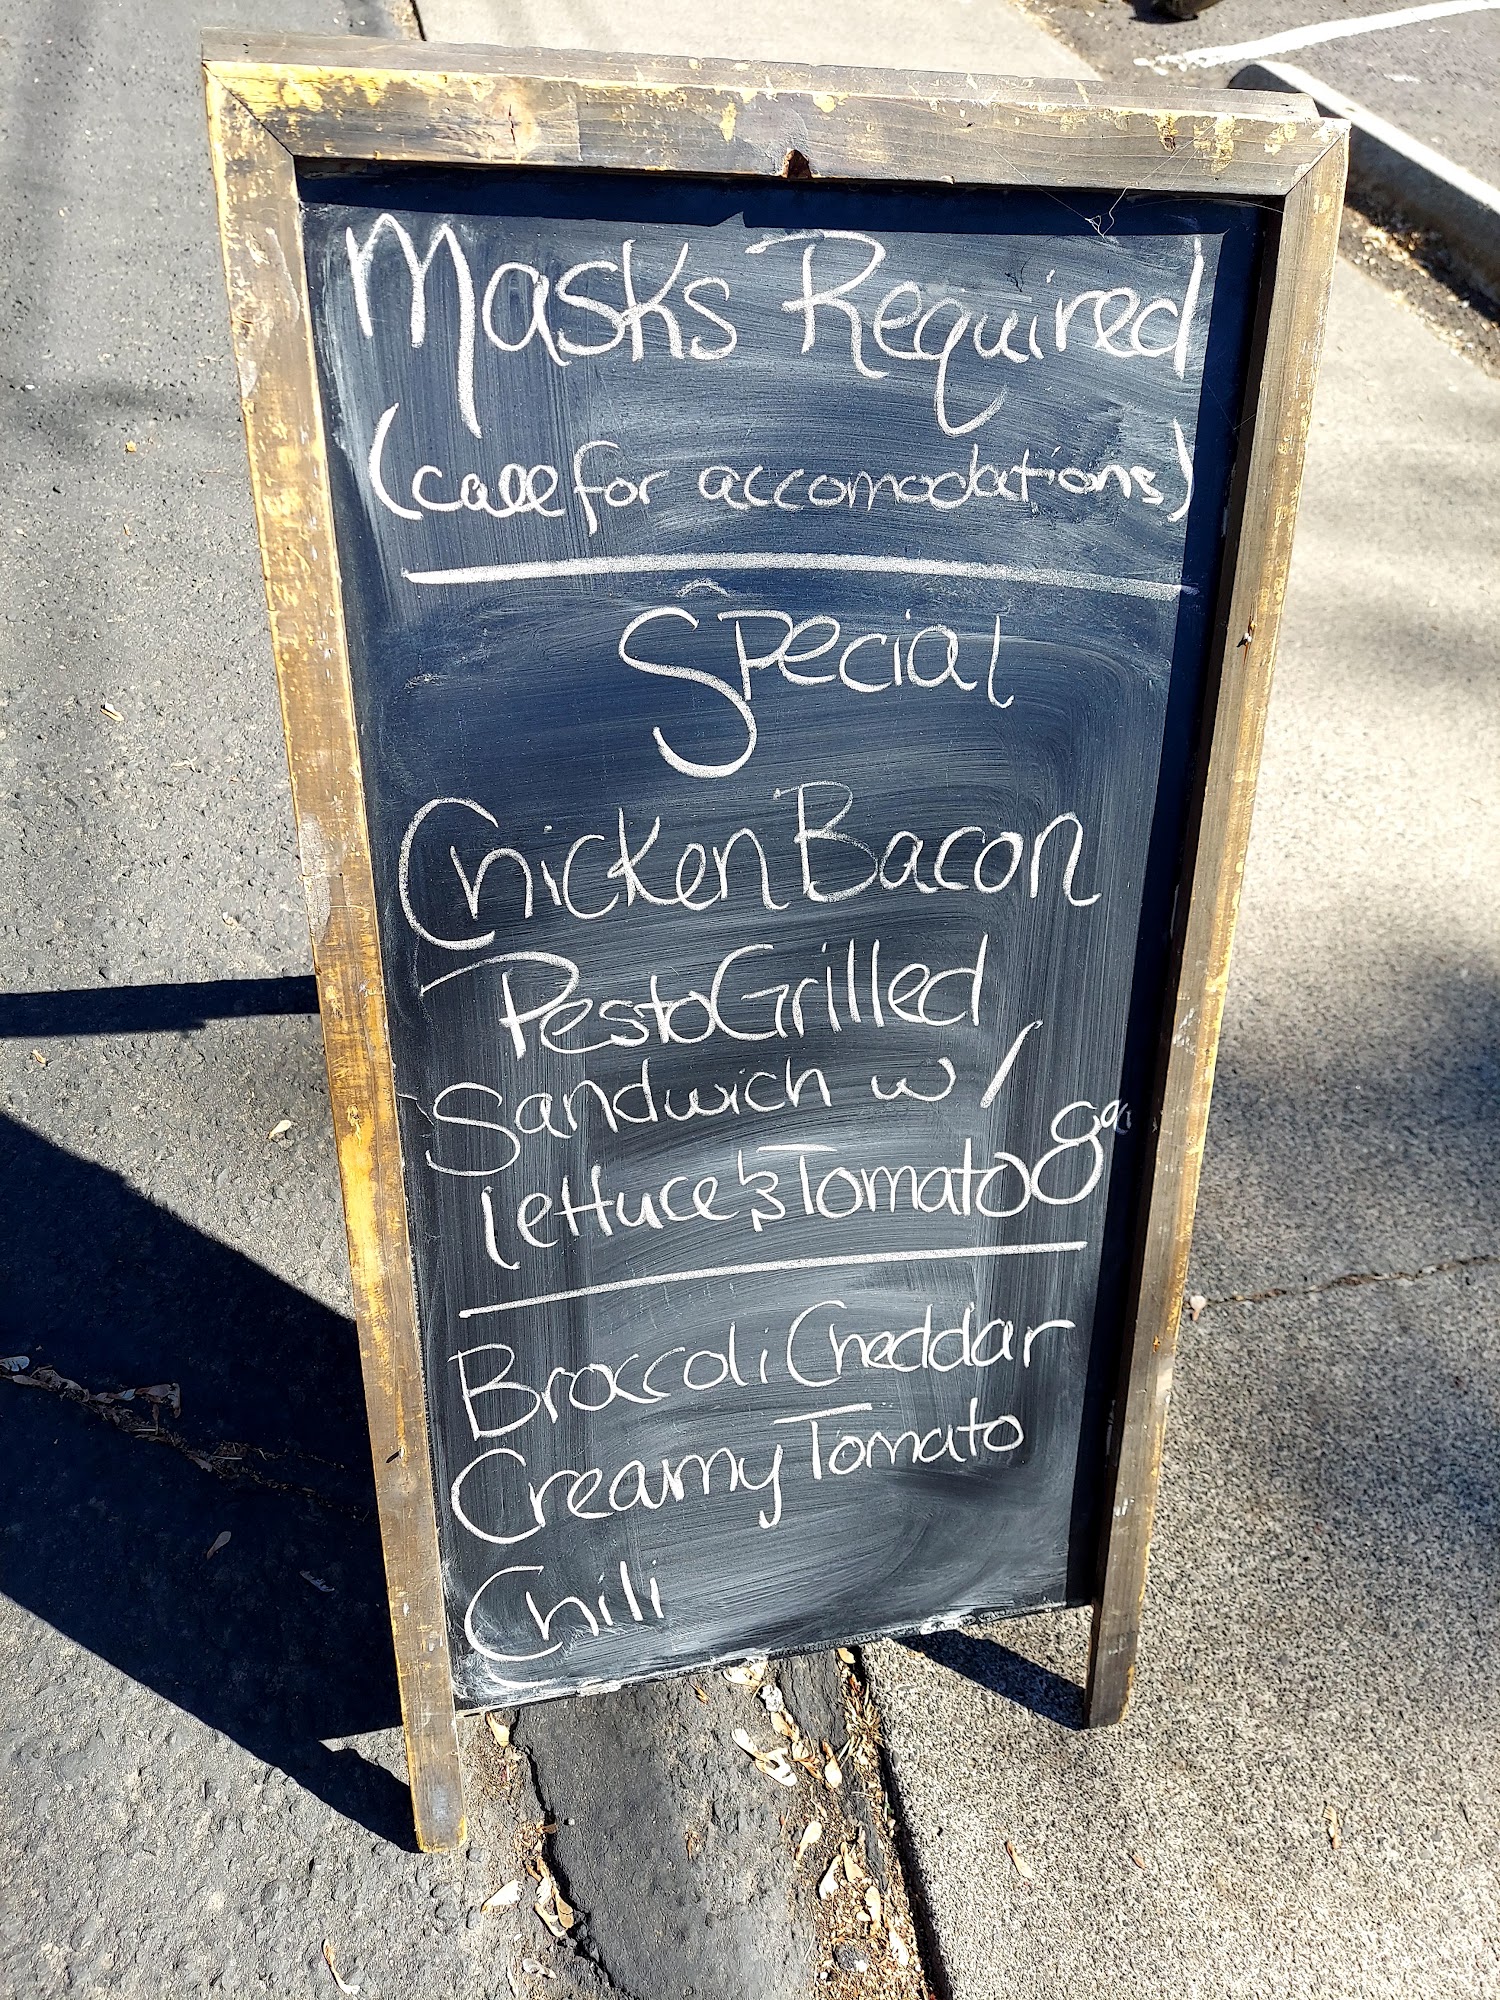 Masks Required
(call for accomodations)
Special
Chicken Bacon
Pesto Grilled
Sandwich w/
Lettuce & Tomato 8
Broccoli Cheddar
Creamy Tomato
Chili